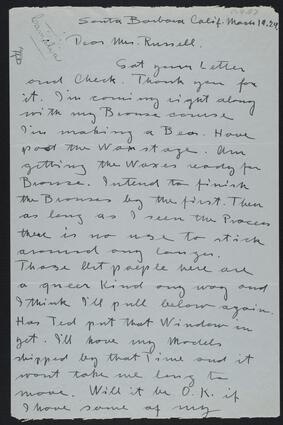 Santa Barbara Calif. March 19.29
Dear Mrs. Russell.
Got your Letter
and Check. Thank you for
it. I'm coming right along
with my Bronze course
I'm making a Bear. Have
past the Wax stage. Am
getting the Waxes ready for
Bronze. Intend to finish
the Bronses by the first. Then
as long as I seen the Process
there is no use to stick
around any longer.
Those people here are
a queer Kind any way and
I think I'll pull below again.
Has Ted put that Window in
yet. I'll have my Models
shipped by that Time and it
wont take me long to
move. Will it be O.K. if
I have some of my